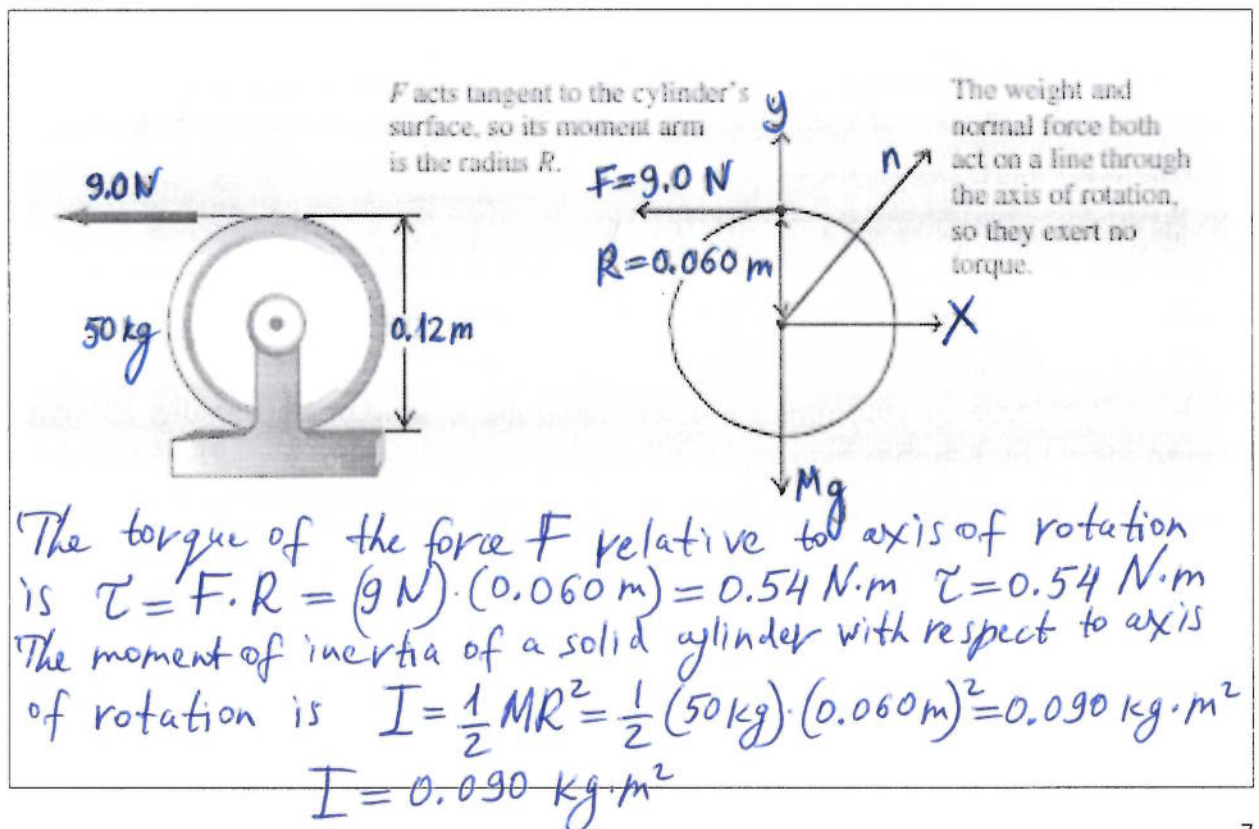 F acts tangent to the cylinder's
surface, so its moment arm
is the radius R.
9.0 N
50 kg
0.12 m
y
F=9.0 N
R=0.060 m
n
X
Mg
The weight and
normal force both
act on a line through
the axis of rotation,
so they exert no
torque.
The torque of the force F relative to axis of rotation
is τ = F.R = (9 N).(0.060 m) = 0.54 N.m τ = 0.54 N.m
The moment of inertia of a solid cylinder with respect to axis
of rotation is I = 1/2 MR² = 1/2 (50 kg).(0.060 m)² = 0.090 kg.m²
I = 0.090 kg.m²